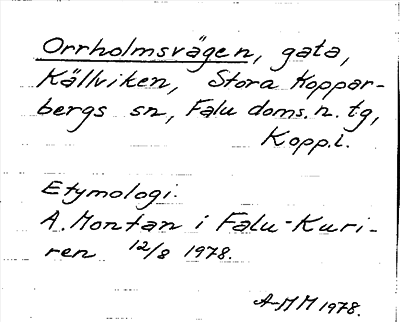 Orrholmsvägen, gata,
Källviken, Stora Koppar-
bergs sn, Falu doms. n. tg,
Kopp.l.
Etymologi:
A. Montan i Falu-Kuri-
ren 12/8 1978.
A-MM 1978.